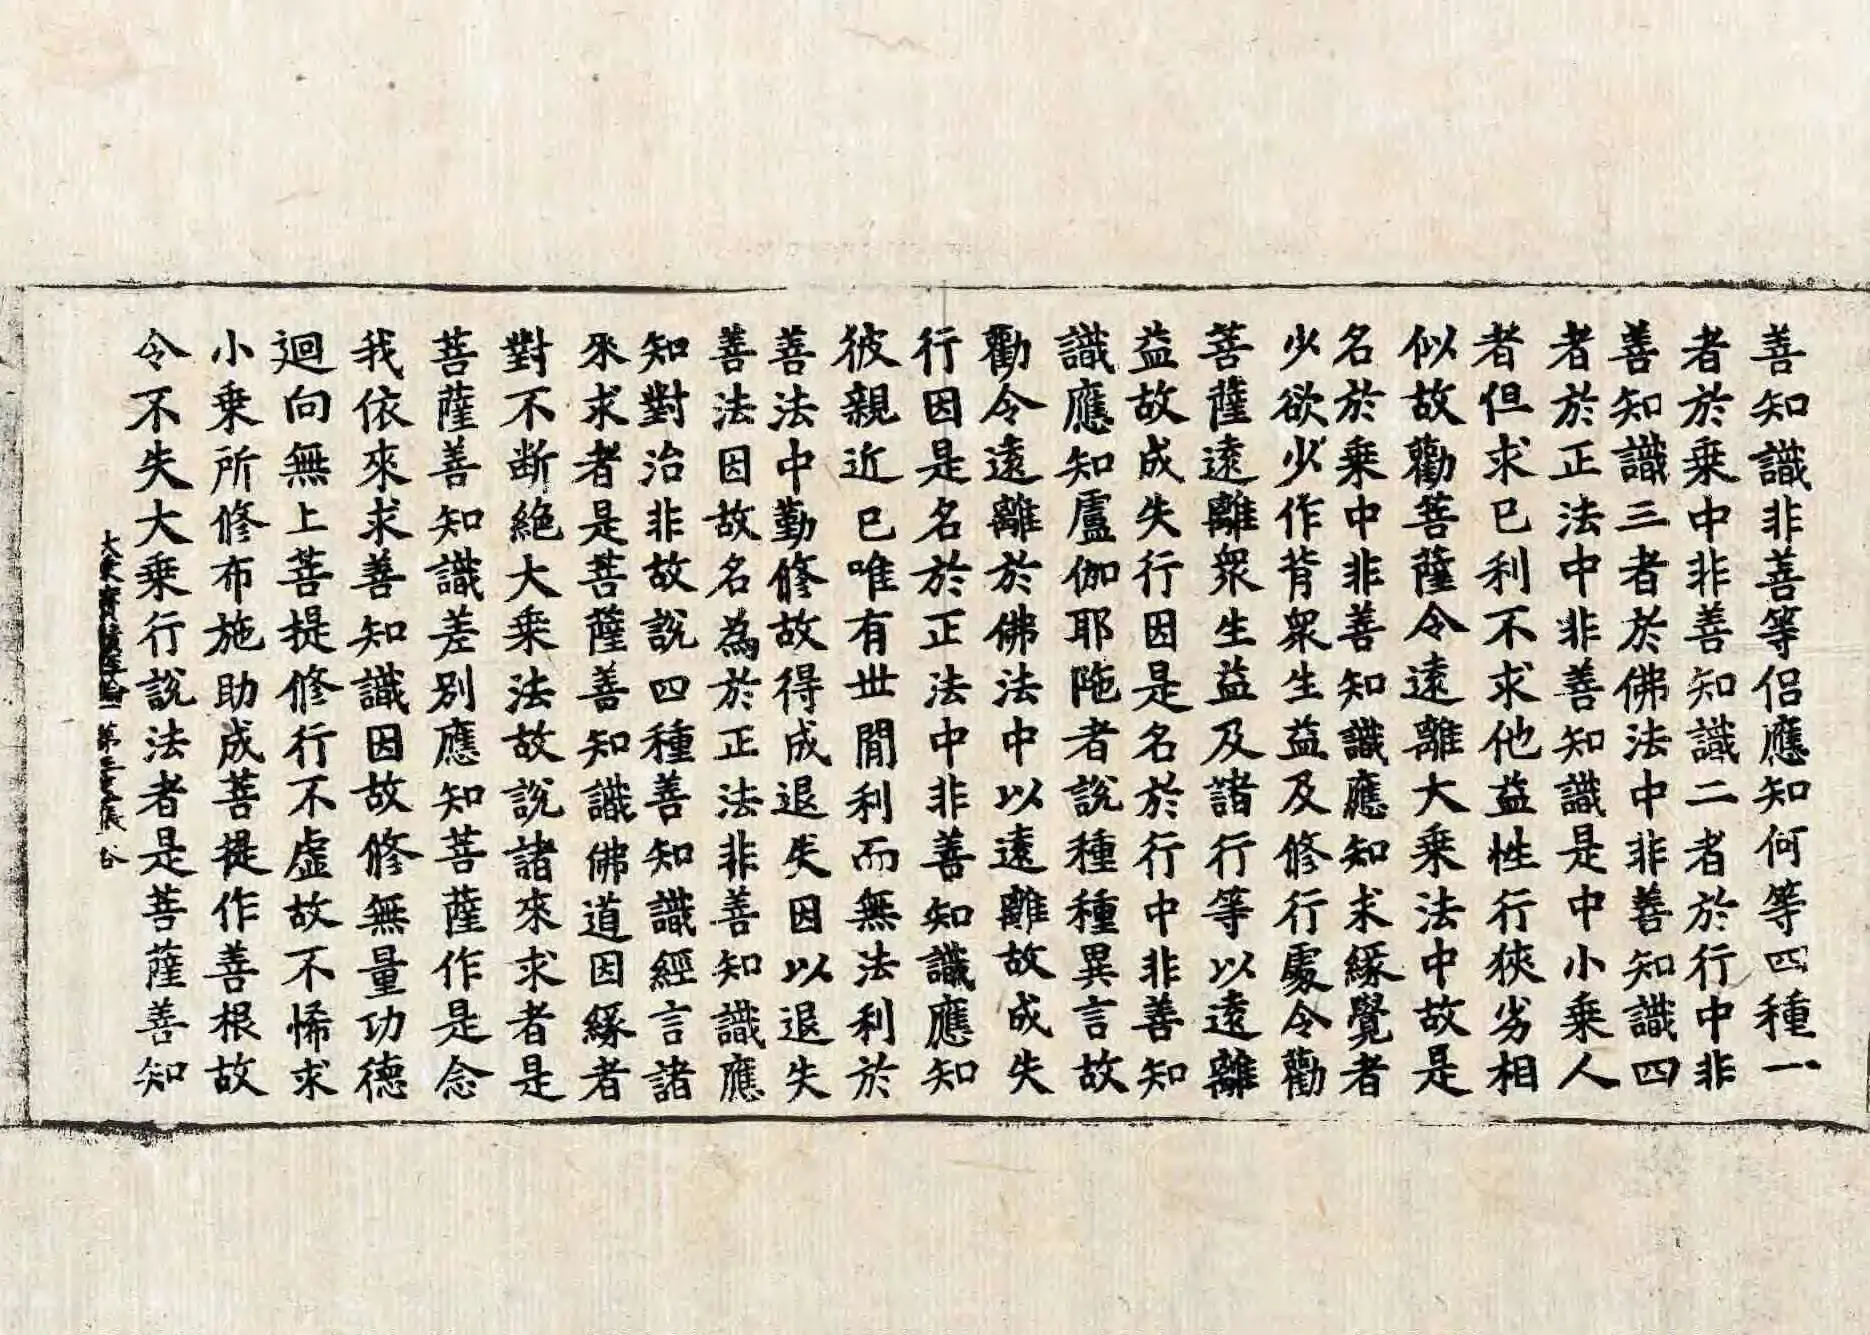 善知識非善等侶應知何等四種一
者於乗中非善知識二者於行中非
善知識三者於佛法中非善知識四
者於正法中非善知識是中小乗人
者但求已利不求他益性行狹劣相
似故勸菩薩令遠離大乗法中故是
名於乗中非善知識應知求緣覺者
少欲少作背衆生益及修行處令勸
菩薩遠離衆生益及諸行等以遠離
益故成失行因是名於行中非善知
識應知盧伽耶陁者說種種異言故
勸令遠離於佛法中以遠離故成失
行因是名於正法中非善知識應知
彼親近已唯有世閒利而無法利於
善法中勤修故得成退失因以退失
善法因故名為於正法非善知識應
知對治非故說四種善知識經言諸
來求者是菩薩善知識佛道因緣者
對不断絶大乗法故說諸來求者是
菩薩善知識差别應知菩薩作是念
我依來求善知識因故修無量功德
迴向無上菩提修行不虛故不悕求
小乗所修布施助成菩提作善根故
令不失大乗行說法者是菩薩善知
大乗寳積經論 第三 張 谷